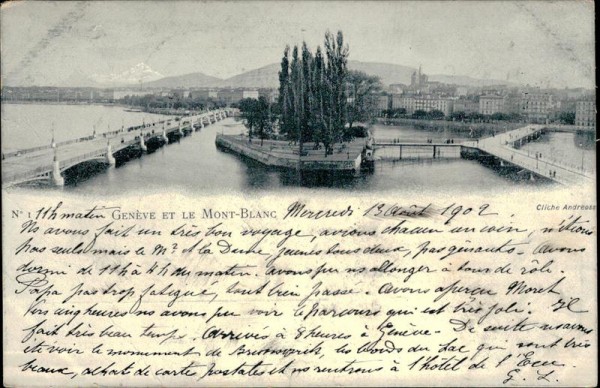 Nº 1 GENÈVE ET LE MONT-BLANC
Cliché Andréoss
11h matin Mercredi 13 Août 1902
Ns avons fait un très bon voyage, avions chacun un coin, n'étions
pas seuls mais le Mr et la Dame jeunes tous deux, pas gênants. Avons
dormi de 11h à 4h du matin. avons pu ns allonger à tour de rôle.
Papa pas trop fatigué, tout bien passé. Avons aperçu Moret
heures ns avons pu voir le parcours qui est très joli. Il
fait très beau temps. Arrivés à 8 heures à Genève. De suite ns avons
été voir le monument de Brunswick, les bords du lac qui sont très
beaux, achat de cartes postales et ns rentrons à l'hôtel de l'Ecu.
G. L.